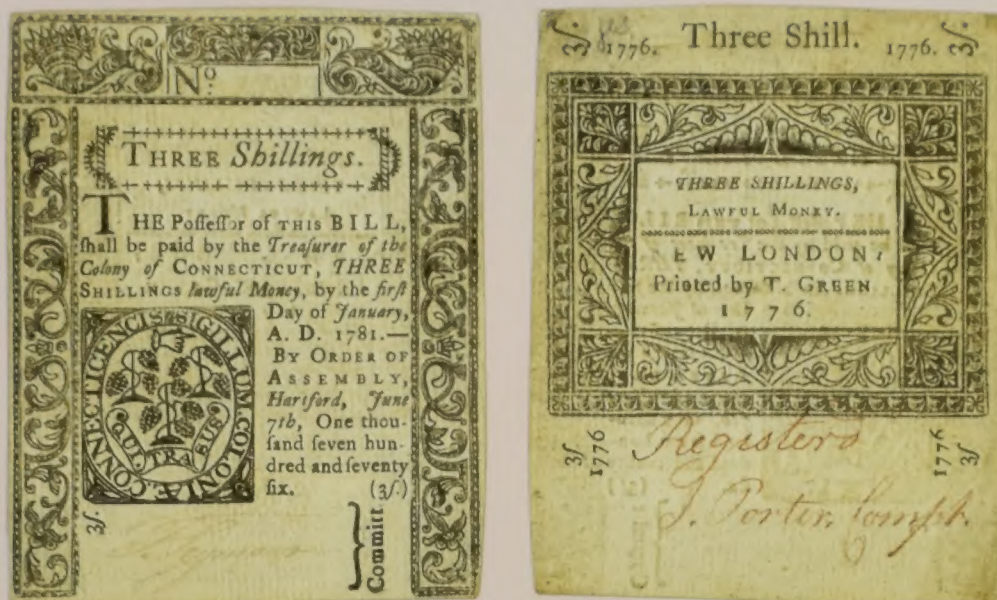 No:
THREE Shillings.
THE Poſſeſſor of THIS BILL,
ſhall be paid by the Treaſurer of the
Colony of CONNECTICUT, THREE
SHILLINGS lawful Money, by the firſt
Day of January,
A. D. 1781.—
BY ORDER OF
ASSEMBLY,
Hartford, June
7th, One thou-
ſand ſeven hun-
dred and ſeventy
ſix. (3ſ.)
SIGILLUM. COLONIÆ. CONNECTICENCIS
QUI. TRA SUS
3ſ.
Committ.
3ſ. 1776. Three Shill. 1776. 3ſ.
THREE SHILLINGS,
LAWFUL MONEY.
EW LONDON:
Printed by T. GREEN
1776.
3ſ 1776
1776 3ſ
Registerd
J. Porter, Compt.